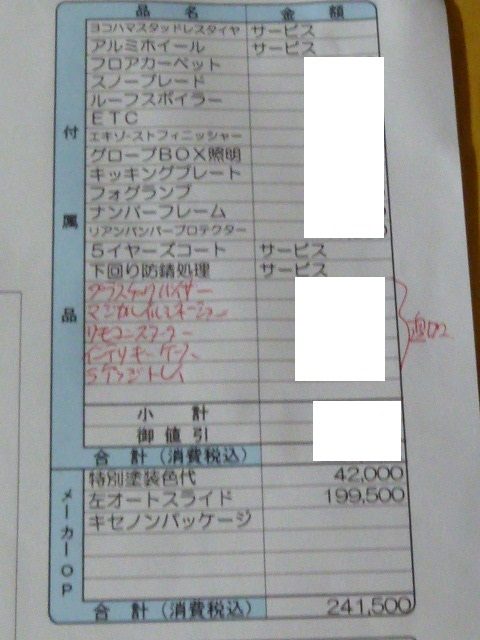 品 名 金 額
ヨコハマスタッドレスタイヤ サービス
アルミホイール サービス
フロアカーペット
スノーブレード
ルーフスポイラー
ETC
エキゾーストフィニッシャー
グローブBOX照明
キッキングプレート
フォグランプ
ナンバーフレーム
リアンバンパープロテクター
5イヤーズコート サービス
下回り防錆処理 サービス
付属品
プラスチックバイザー
マジカルイルミネーション
リモコンスターター
インテリキーケース
ラゲッジトレイ
追加
小 計
御値引
合 計 (消費税込)
メーカーOP
特別塗装色代 42,000
左オートスライド 199,500
キセノンパッケージ
合 計 (消費税込) 241,500